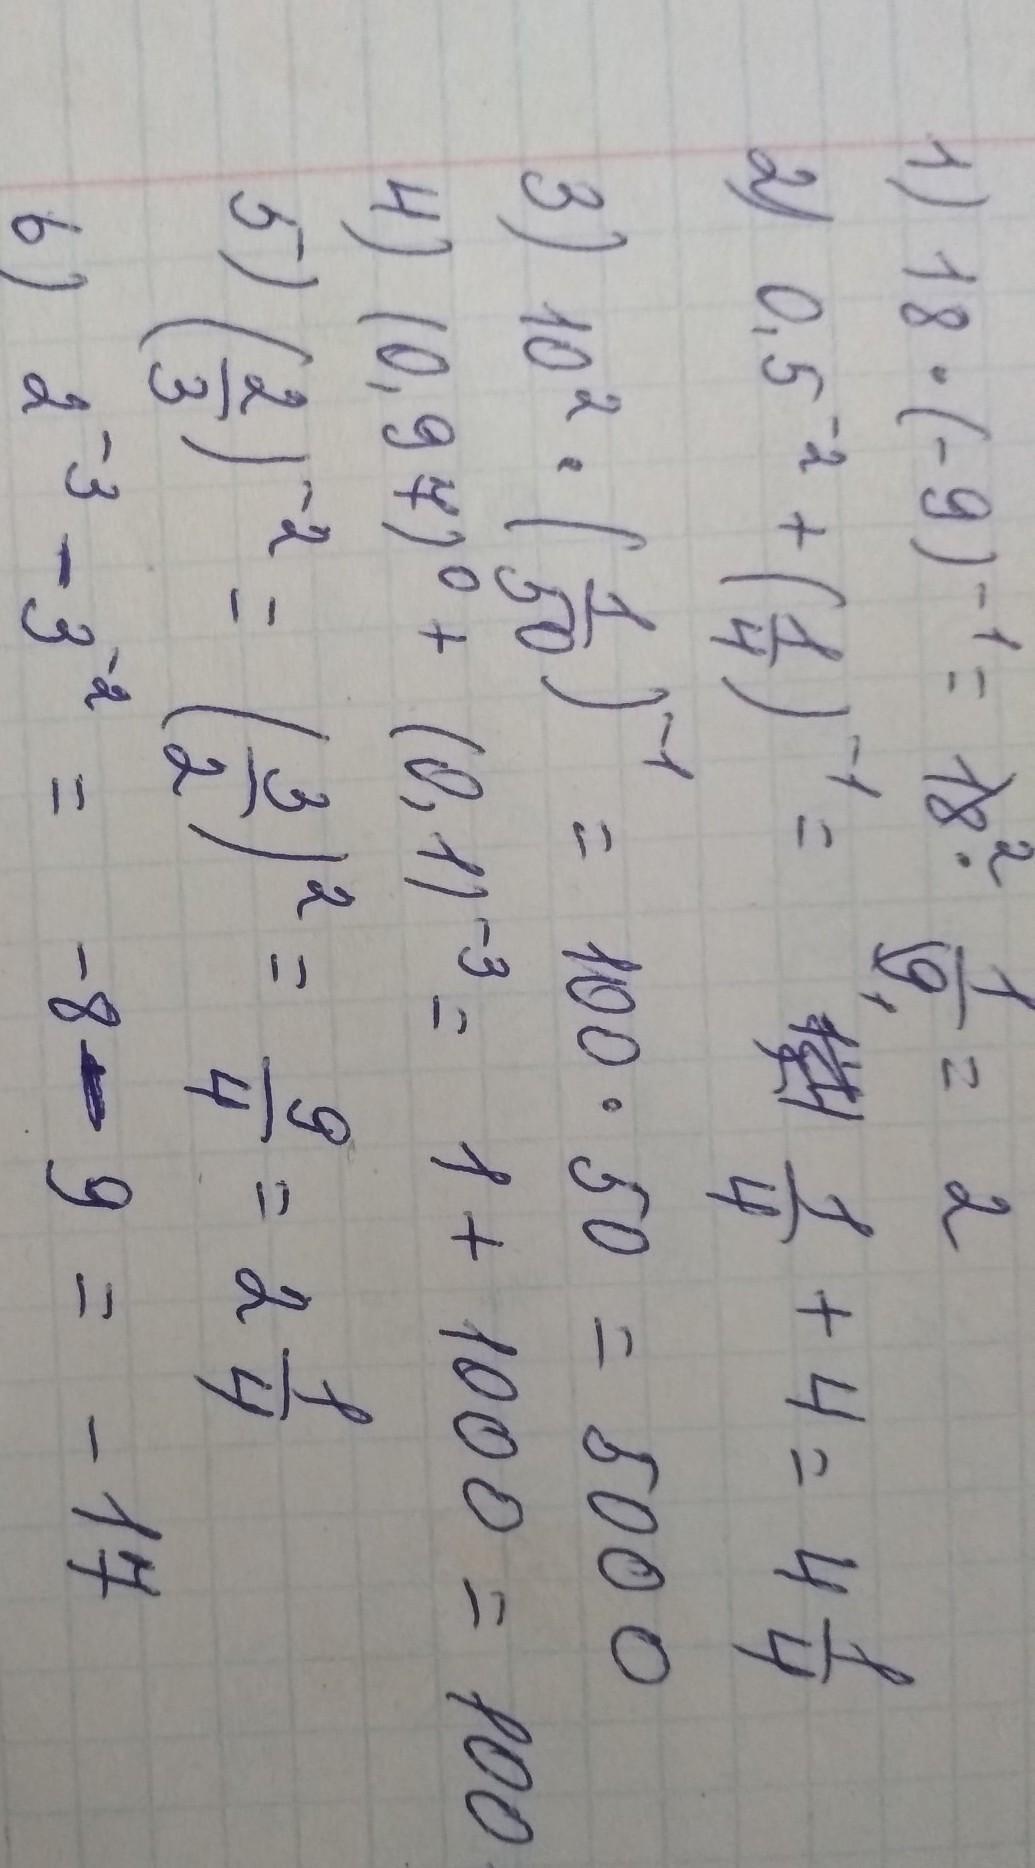 1) 18 · (-9)⁻¹ = 18² · 1/9 = 2
2) 0,5⁻² + (1/4)⁻¹ = 1/4 + 4 = 4 1/4
3) 10² · (1/50)⁻¹ = 100 · 50 = 5000
4) (0,97)⁰ + (0,1)⁻³ = 1 + 1000 = 100
5) (2/3)⁻² = (3/2)² = 9/4 = 2 1/4
6) 2⁻³ - 3⁻² = -8 - 9 = -17